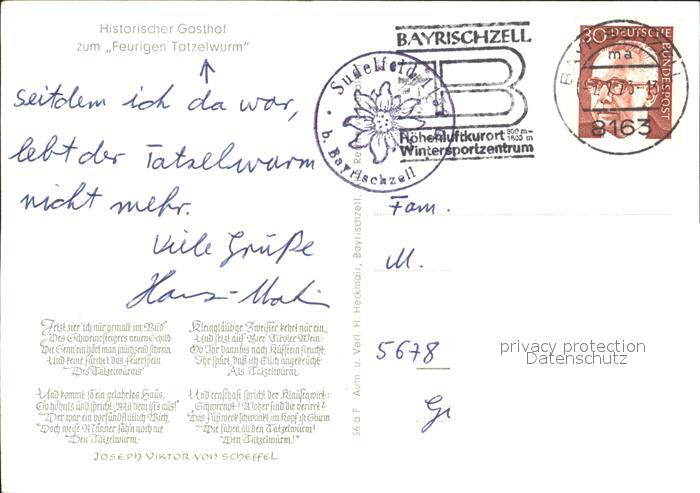 Historischer Gasthof
zum „Feurigen Tatzelwurm"
seitdem ich da war,
lebt der Tatzelwurm
nicht mehr.
Viele Grüße
Hans-Martin
Jetzt zier' ich nur gemalt im Bild
Des Schweinesteigers neuem Schild
Die Senn'in hört man jauchzend schrein
Und keine fürchtet das Feuerspein
Des Tatzelwurms
Und kommt so ein gelahrtes Haus,
So höhnts und spricht: Mit dem ists aus!
Der war ein vorsündflutlich Vieh,
Doch weise Männer sahn noch nie
Den Tatzelwurm.
Kleingläubige Zweifler kehrt nur ein,
Und setzt auf Vier Tiroler Wein:
Ob Ihr dann bis nach Kufstein fleucht,
Ihr spürt, daß ich Euch angekeucht
Als Tatzelwurm.
Und ernsthaft spricht der Klausenwirt:
Schwernot! Woher sind die verirrt?
Das Fußwerk schwankt, im Kopf ist Sturm
Die sahen all den Tatzelwurm!
Den Tatzelwurm!"
JOSEPH VIKTOR VON SCHEFFEL
36 a F Aufn. u. Verl. H. Heckmair, Bayrischzell.
Sudelfeld
b. Bayrischzell
BAYRISCHZELL
B
Höhenluftkurort 800 m -
1800 m
Wintersportzentrum
ma
8163
30 DEUTSCHE
BUNDESPOST
Fam.
M.
5678
privacy protection
Datenschutz